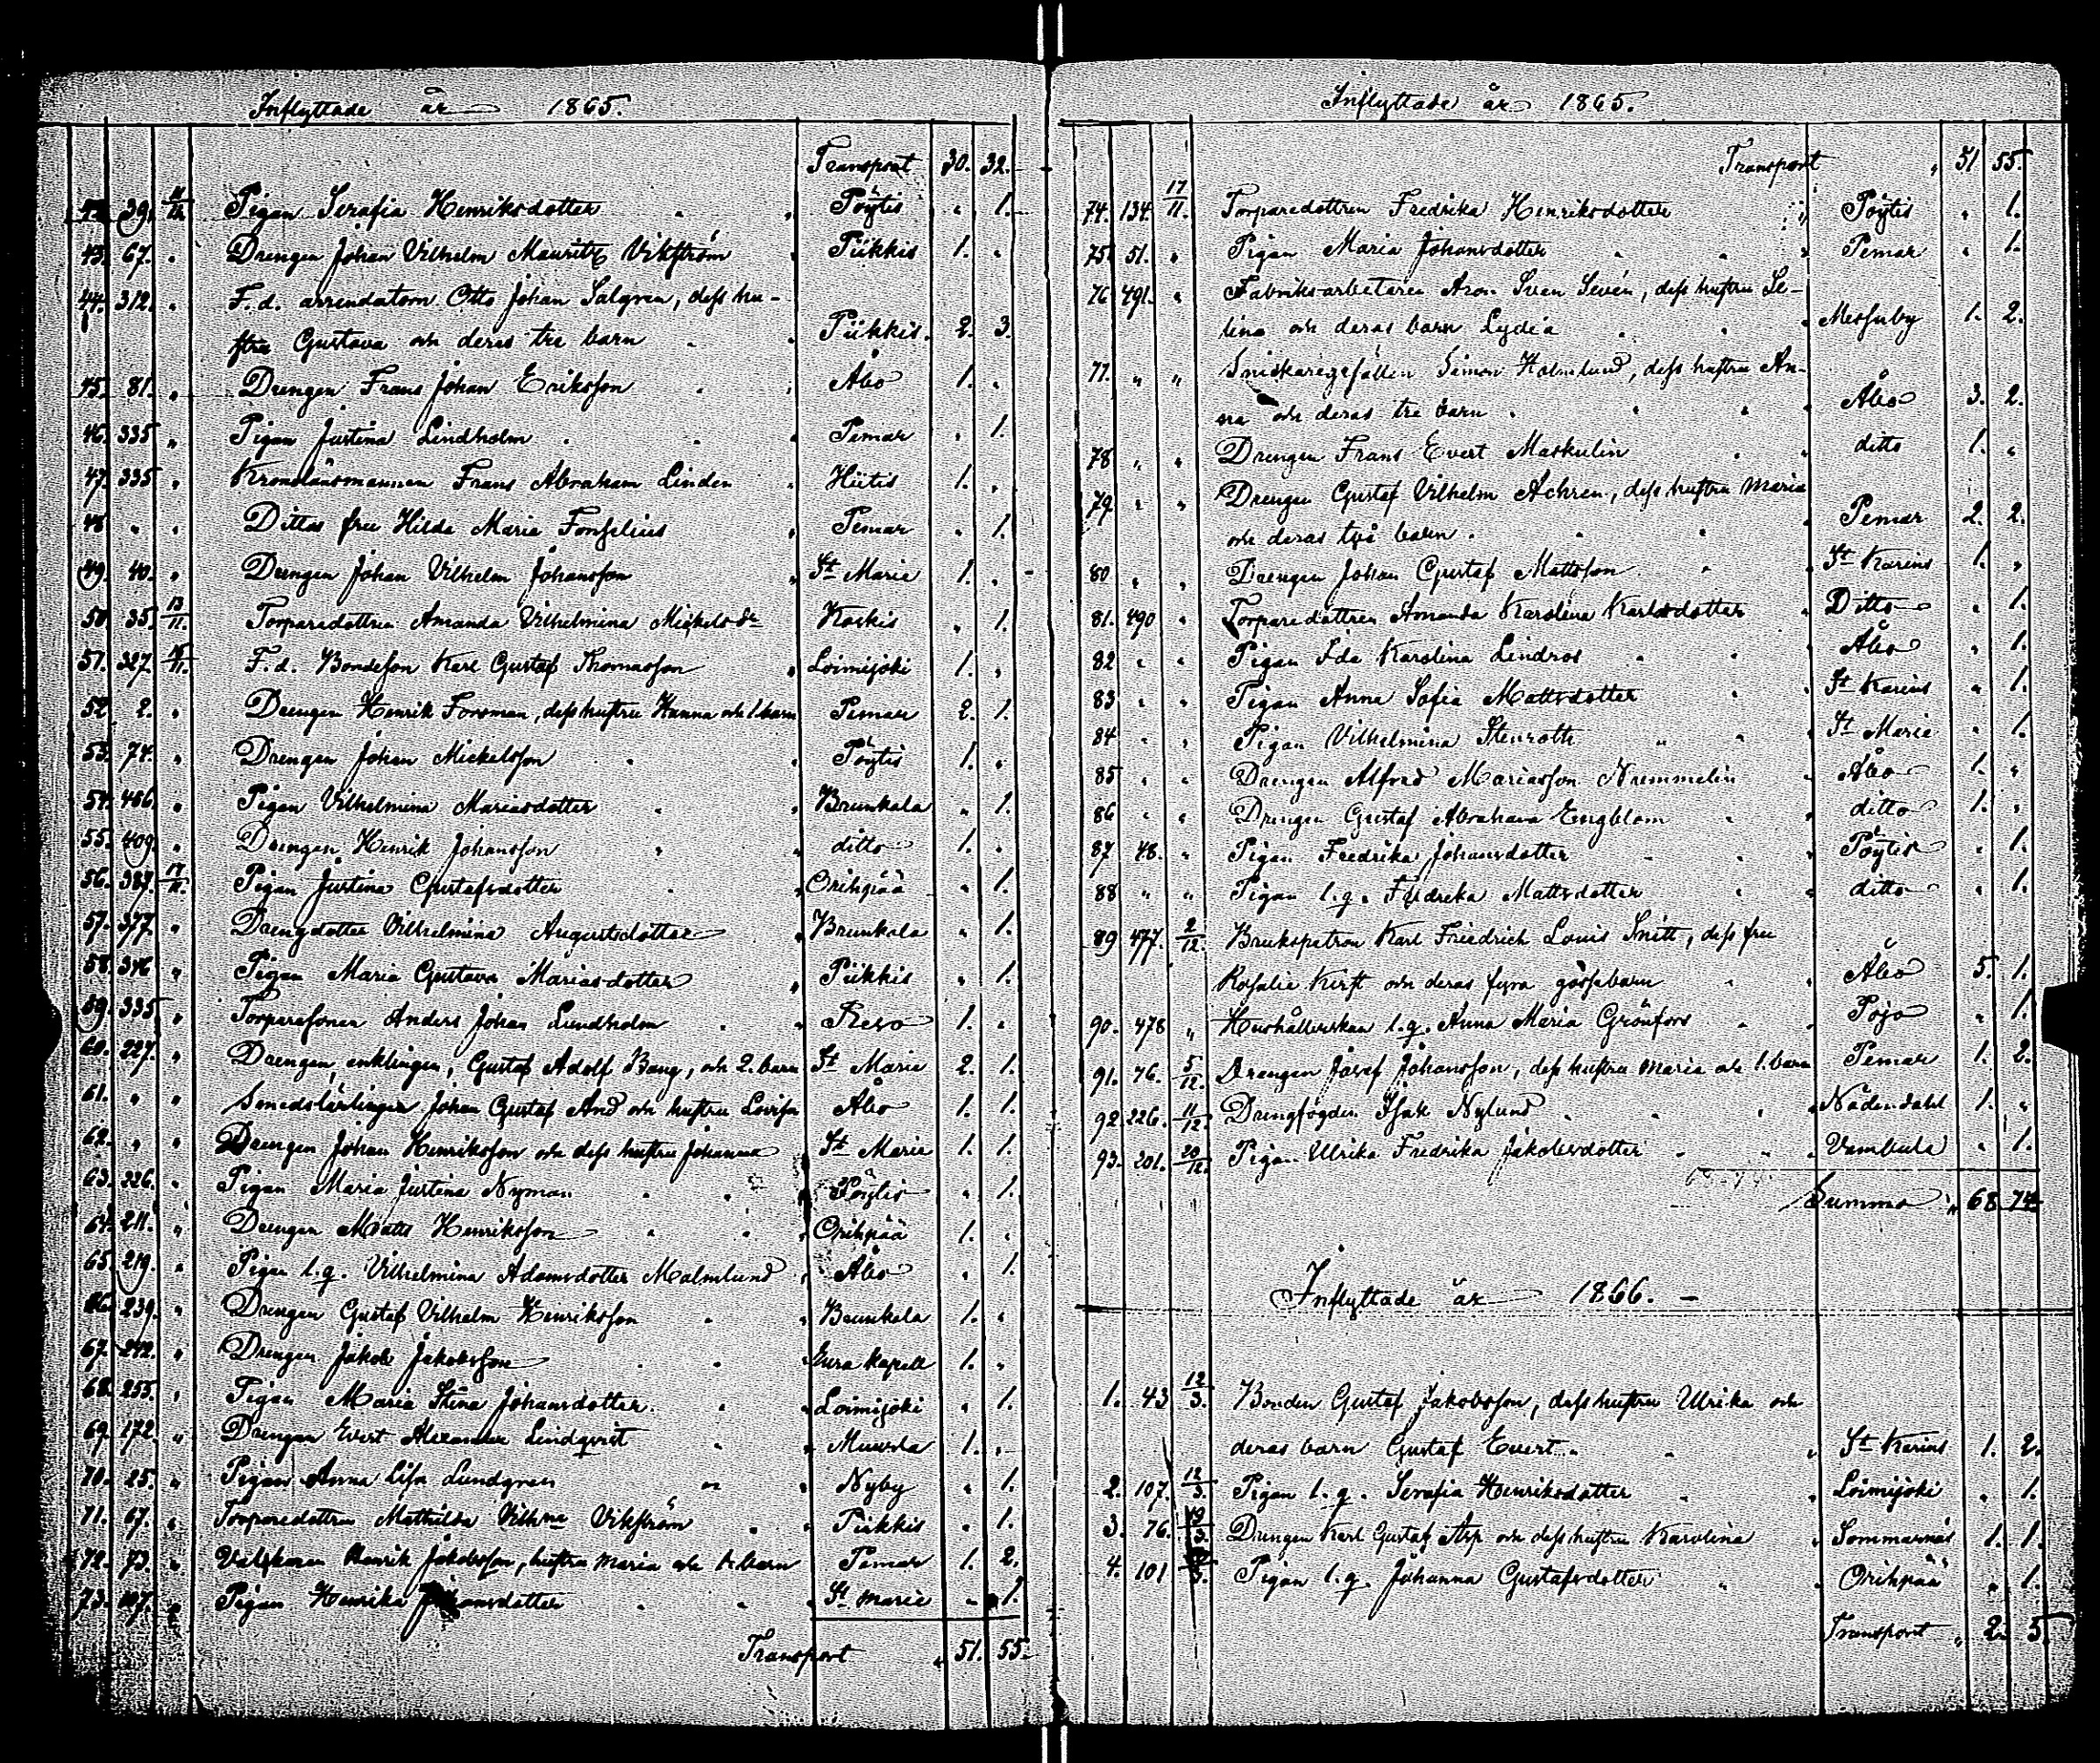 Inflyttade år 1865.
Transport 30. 32.
39. 11/12 Pigan Serafia Henriksdotter Pöytis " 1.
43. 67. " Drengen Johan Vilhelm Mauritz Vikström Piikkis 1. "
44. 312. " F.d. arrendatorn Otto Johan Salgren, dess hu-
stru Gustava och deras tre barn Piikkis. 2. 3.
45. 81. " Drengen Frans Johan Eriksson Åbo 1. "
46. 335 " Pigan Justina Lindholm Pemar " 1.
47. 335 " Kronolänsmannen Frans Abraham Linden Hiitis 1. "
48 " " Dittos fru Hilda Maria Forsselius Pemar " 1.
49. 40. " Drengen Johan Vilhelm Johansson St Marie 1. "
50 35. 13/11. Torparedottren Amanda Vilhelmina Mickelsdr Koskis " 1.
51. 327 /11. F.d. Bondeson Karl Gustaf Thomasson Loimijoki 1. "
52 2. " Drengen Henrik Forsman, dess hustru Hanna och 1. barn Pemar 2. 1.
53. 74. " Drengen Johan Mickelsson Pöytis 1. "
54. 406. " Pigan Vilhelmina Mariasdotter Brunkala " 1.
55. 409. " Drengen Henrik Johansson ditto 1. "
56. 387. 17/11. Pigan Justina Gustafsdotter Orihpää " 1.
57. 377. " Drengdotter Vilhelmina Augustsdotter Brunkala " 1.
58. 346 " Pigan Maria Gustava Mariasdotter Piikkis " 1.
59. 335. " Torparesonen Anders Johan Lundholm Reso 1. "
60. 227. " Drengen, enklingen, Gustaf Adolf Bang, och 2. barn St Marie 2. 1.
61. " " Smedslärlingen Johan Gustaf And och hustru Lovisa Åbo 1. 1.
62. " " Drengen Johan Henriksson och dess hustru Johanna St Marie 1. 1.
63. 226. " Pigan Maria Justina Nyman Pöytis " 1.
64. 211. " Drengen Matts Henriksson Orihpää 1. "
65. 219. " Pigan l.g. Vilhelmina Adamsdotter Malmlund Åbo " 1.
66. 239. " Drengen Gustaf Vilhelm Henriksson Brunkala 1. "
67. 242. " Drengen Jakob Jakobsson Eura Kapell 1. "
68. 255. " Pigan Maria Stina Johansdotter Loimijoki " 1.
69. 172. " Drengen Evert Alexander Lindqvist Muurla 1. "
70. 25. " Pigan Anna Lisa Lundgren Nyby " 1.
71. 67. " Torparedottren Mathilda Vilhna Vikström Piikkis " 1.
72. 73. " Henrik Jakobsson, hustru Maria och 1. barn Pemar 1. 2.
73. 107. " Pigan Henrika Johansdotter St Marie " 1.
Transport " 51. 55.
Inflyttade år 1865.
Transport " 51 55.
74. 134. 17/11. Torparedottren Fredrika Henriksdotter Pöytis " 1.
75. 51. " Pigan Maria Johansdotter Pemar " 1.
76 491. " Fabriks-arbetaren Aron Sven Sevén, dess hustru Se-
lina och deras barn Lydia Messuby 1. 2.
77. " " Snickaregesällen Simon Holmlund, dess hustru An-
na och deras tre barn Åbo 3. 2.
78 " " Drengen Frans Evert Maskulin ditto 1. "
79 " " Drengen Gustaf Vilhelm Achren, dess hustru Maria
och deras två barn Pemar 2. 2.
80 " " Drengen Johan Gustaf Mattsson St Karins 1. "
81. 490 " Torparedottren Amanda Karolina Karlsdotter Ditto " 1.
82 " " Pigan Ida Karolina Lindros Åbo " 1.
83 " " Pigan Anna Sofia Mattsdotter St Karins " 1.
84 " " Pigan Vilhelmina Stenroth St Marie " 1.
85 " " Drengen Alfred Mariasson Nummelin Åbo 1. "
86 " " Drengen Gustaf Abraham Engblom ditto 1. "
87 48. " Pigan Fredrika Johansdotter Pöytis " 1.
88 " " Pigan l.g. Fredrika Mattsdotter ditto " 1.
89 477. 2/12. Brukspatron Karl Friedrich Louis Snitt, dess fru
Rosalie Kirst och deras fyra gossebarn Åbo 5. 1.
90. 478 " Hushållerskan l.g. Anna Maria Grönfors Pojo " 1.
91. 76. 5/12. Drengen Josef Johansson, dess hustru Maria och 1. barn Pemar 1. 2.
92. 226. 11/12. Drengfogden Isak Nylund Nådendahl 1. "
93. 201. 20/12. Pigan Ulrika Fredrika Jakobsdotter Vambula " 1.
Summa " 68 74
Inflyttade år 1866. -
1. 43 12/3. Bonden Gustaf Jakobsson, dess hustru Ulrika och
deras barn Gustaf Evert St Karins 1. 2.
2. 107. 12/3. Pigan l.g. Serafia Henriksdotter Loimijoki " 1.
3. 76. 19/3. Drengen Karl Gustaf Asp och dess hustru Karolina Sommarnäs 1. 1.
4. 101 Pigan l.g. Johanna Gustafsdotter Orihpää " 1.
Transport " 2. 5.